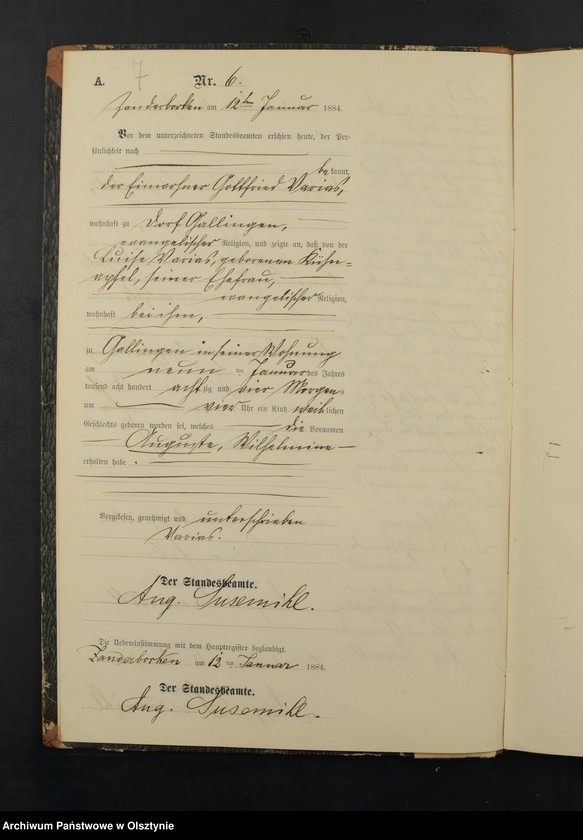 A. 7 Nr. 6.
Zanderborken am 12ten Januar 1884.
Vor dem unterzeichneten Standesbeamten erschien heute, der Per-
sönlichkeit nach
bekannt,
der Einwohner Gottfried Varias,
wohnhaft zu Dorf Gallingen,
evangelischer Religion, und zeigte an, daß von der
Luise Varias, geborenen Kühn-
apfel, seiner Ehefrau,
evangelischer Religion,
wohnhaft bei ihm,
zu Gallingen in seiner Wohnung
am neun ten Januar des Jahres
tausend acht hundert acht zig und vier Morgens
um vier Uhr ein Kind weiblichen
Geschlechts geboren worden sei, welches die Vornamen
Auguste, Wilhelmine
erhalten habe.
Vorgelesen, genehmigt und unterschrieben
Varias.
Der Standesbeamte.
Aug. Susemihl.
Die Uebereinstimmung mit dem Hauptregister beglaubigt.
Zanderborken am 12 ten Januar 1884.
Der Standesbeamte.
Aug. Susemihl.
Archiwum Państwowe w Olsztynie